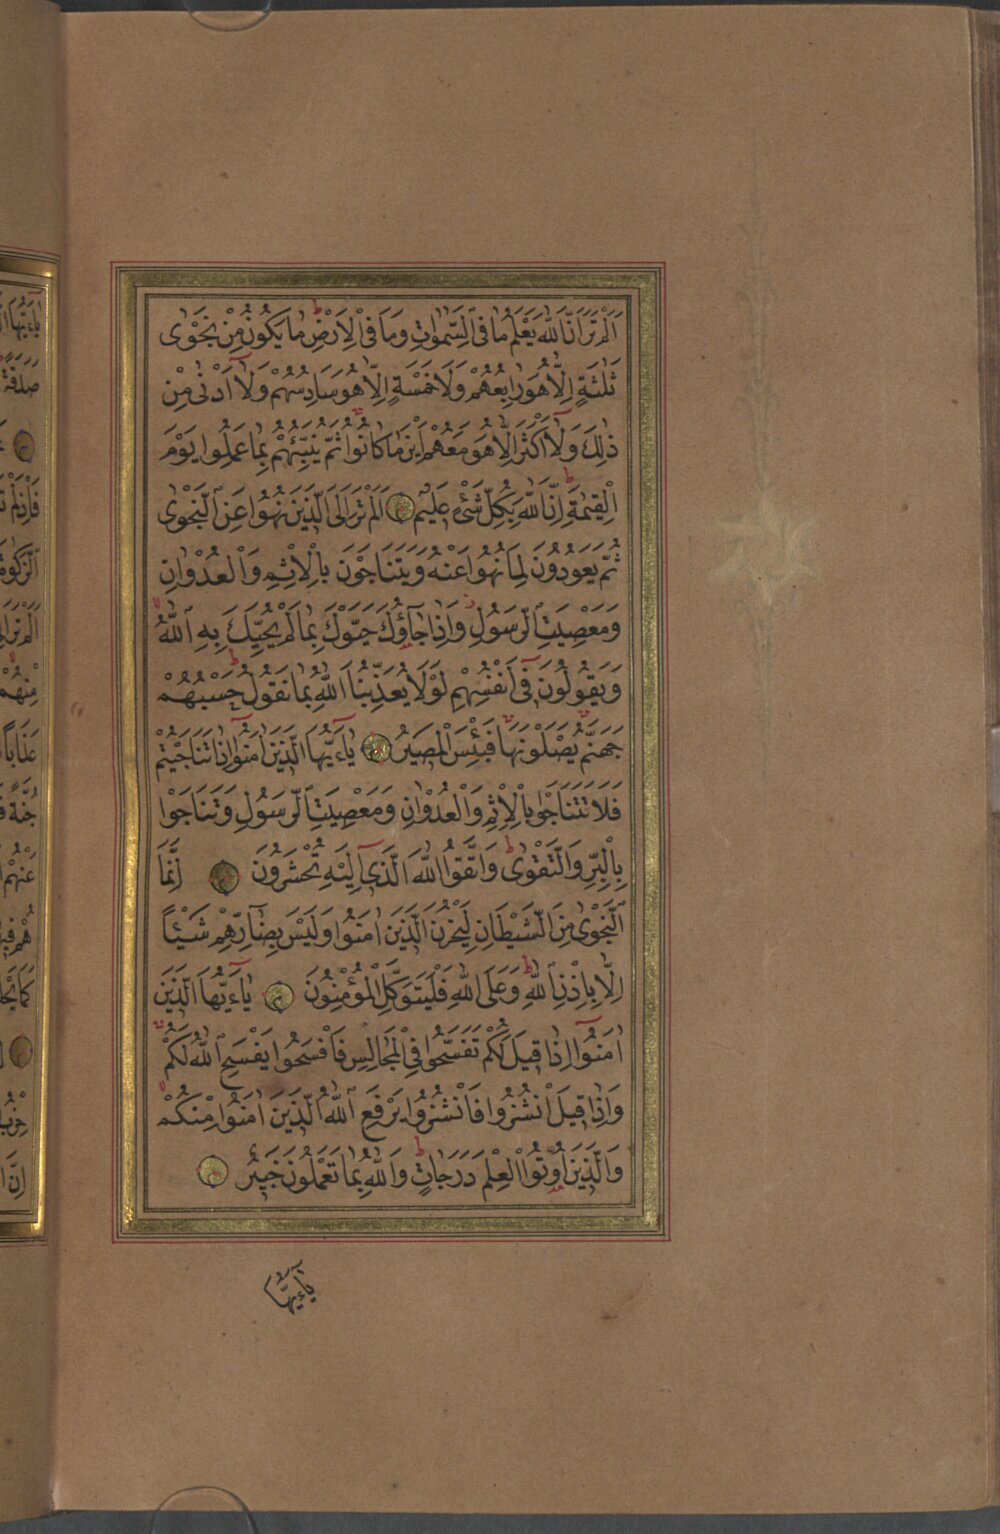 اَلَمْ تَرَ اَنَّ اللّٰهَ يَعْلَمُ مَا فِى السَّمٰوَاتِ وَمَا فِى الْاَرْضِ مَا يَكُونُ مِنْ نَجْوٰى
ثَلٰثَةٍ اِلَّا هُوَ رَابِعُهُمْ وَلَا خَمْسَةٍ اِلَّا هُوَ سَادِسُهُمْ وَلَٓا اَدْنٰى مِنْ
ذٰلِكَ وَلَٓا اَكْثَرَ اِلَّا هُوَ مَعَهُمْ اَيْنَ مَا كَانُوا ثُمَّ يُنَبِّئُهُمْ بِمَا عَمِلُوا يَوْمَ
الْقِيٰمَةِ اِنَّ اللّٰهَ بِكُلِّ شَىْءٍ عَلِيمٌ اَلَمْ تَرَ اِلَى الَّذِينَ نُهُوا عَنِ النَّجْوٰى
ثُمَّ يَعُودُونَ لِمَا نُهُوا عَنْهُ وَيَتَنَاجَوْنَ بِالْاِثْمِ وَالْعُدْوَانِ
وَمَعْصِيَتِ الرَّسُولِ وَاِذَا جَٓاؤُكَ حَيَّوْكَ بِمَا لَمْ يُحَيِّكَ بِهِ اللّٰهُ
وَيَقُولُونَ فِٓى اَنْفُسِهِمْ لَوْلَا يُعَذِّبُنَا اللّٰهُ بِمَا نَقُولُ حَسْبُهُمْ
جَهَنَّمُ يَصْلَوْنَهَا فَبِئْسَ الْمَصِيرُ يَٓاءَيُّهَا الَّذِينَ اٰمَنُٓوا اِذَا تَنَاجَيْتُمْ
فَلَا تَتَنَاجَوْا بِالْاِثْمِ وَالْعُدْوَانِ وَمَعْصِيَتِ الرَّسُولِ وَتَنَاجَوْا
بِالْبِرِّ وَالتَّقْوٰى وَاتَّقُوا اللّٰهَ الَّذِٓى اِلَيْهِ تُحْشَرُونَ اِنَّمَا
النَّجْوٰى مِنَ الشَّيْطَانِ لِيَحْزُنَ الَّذِينَ اٰمَنُوا وَلَيْسَ بِضَٓارِّهِمْ شَيْئًا
اِلَّا بِاِذْنِ اللّٰهِ وَعَلَى اللّٰهِ فَلْيَتَوَكَّلِ الْمُؤْمِنُونَ يَٓاءَيُّهَا الَّذِينَ
اٰمَنُٓوا اِذَا قِيلَ لَكُمْ تَفَسَّحُوا فِى الْمَجَالِسِ فَافْسَحُوا يَفْسَحِ اللّٰهُ لَكُمْ
وَاِذَا قِيلَ انْشُزُوا فَانْشُزُوا يَرْفَعِ اللّٰهُ الَّذِينَ اٰمَنُوا مِنْكُمْ
وَالَّذِينَ اُوتُوا الْعِلْمَ دَرَجَاتٍ وَاللّٰهُ بِمَا تَعْمَلُونَ خَبِيرٌ
يَٓاءَيُّهَا